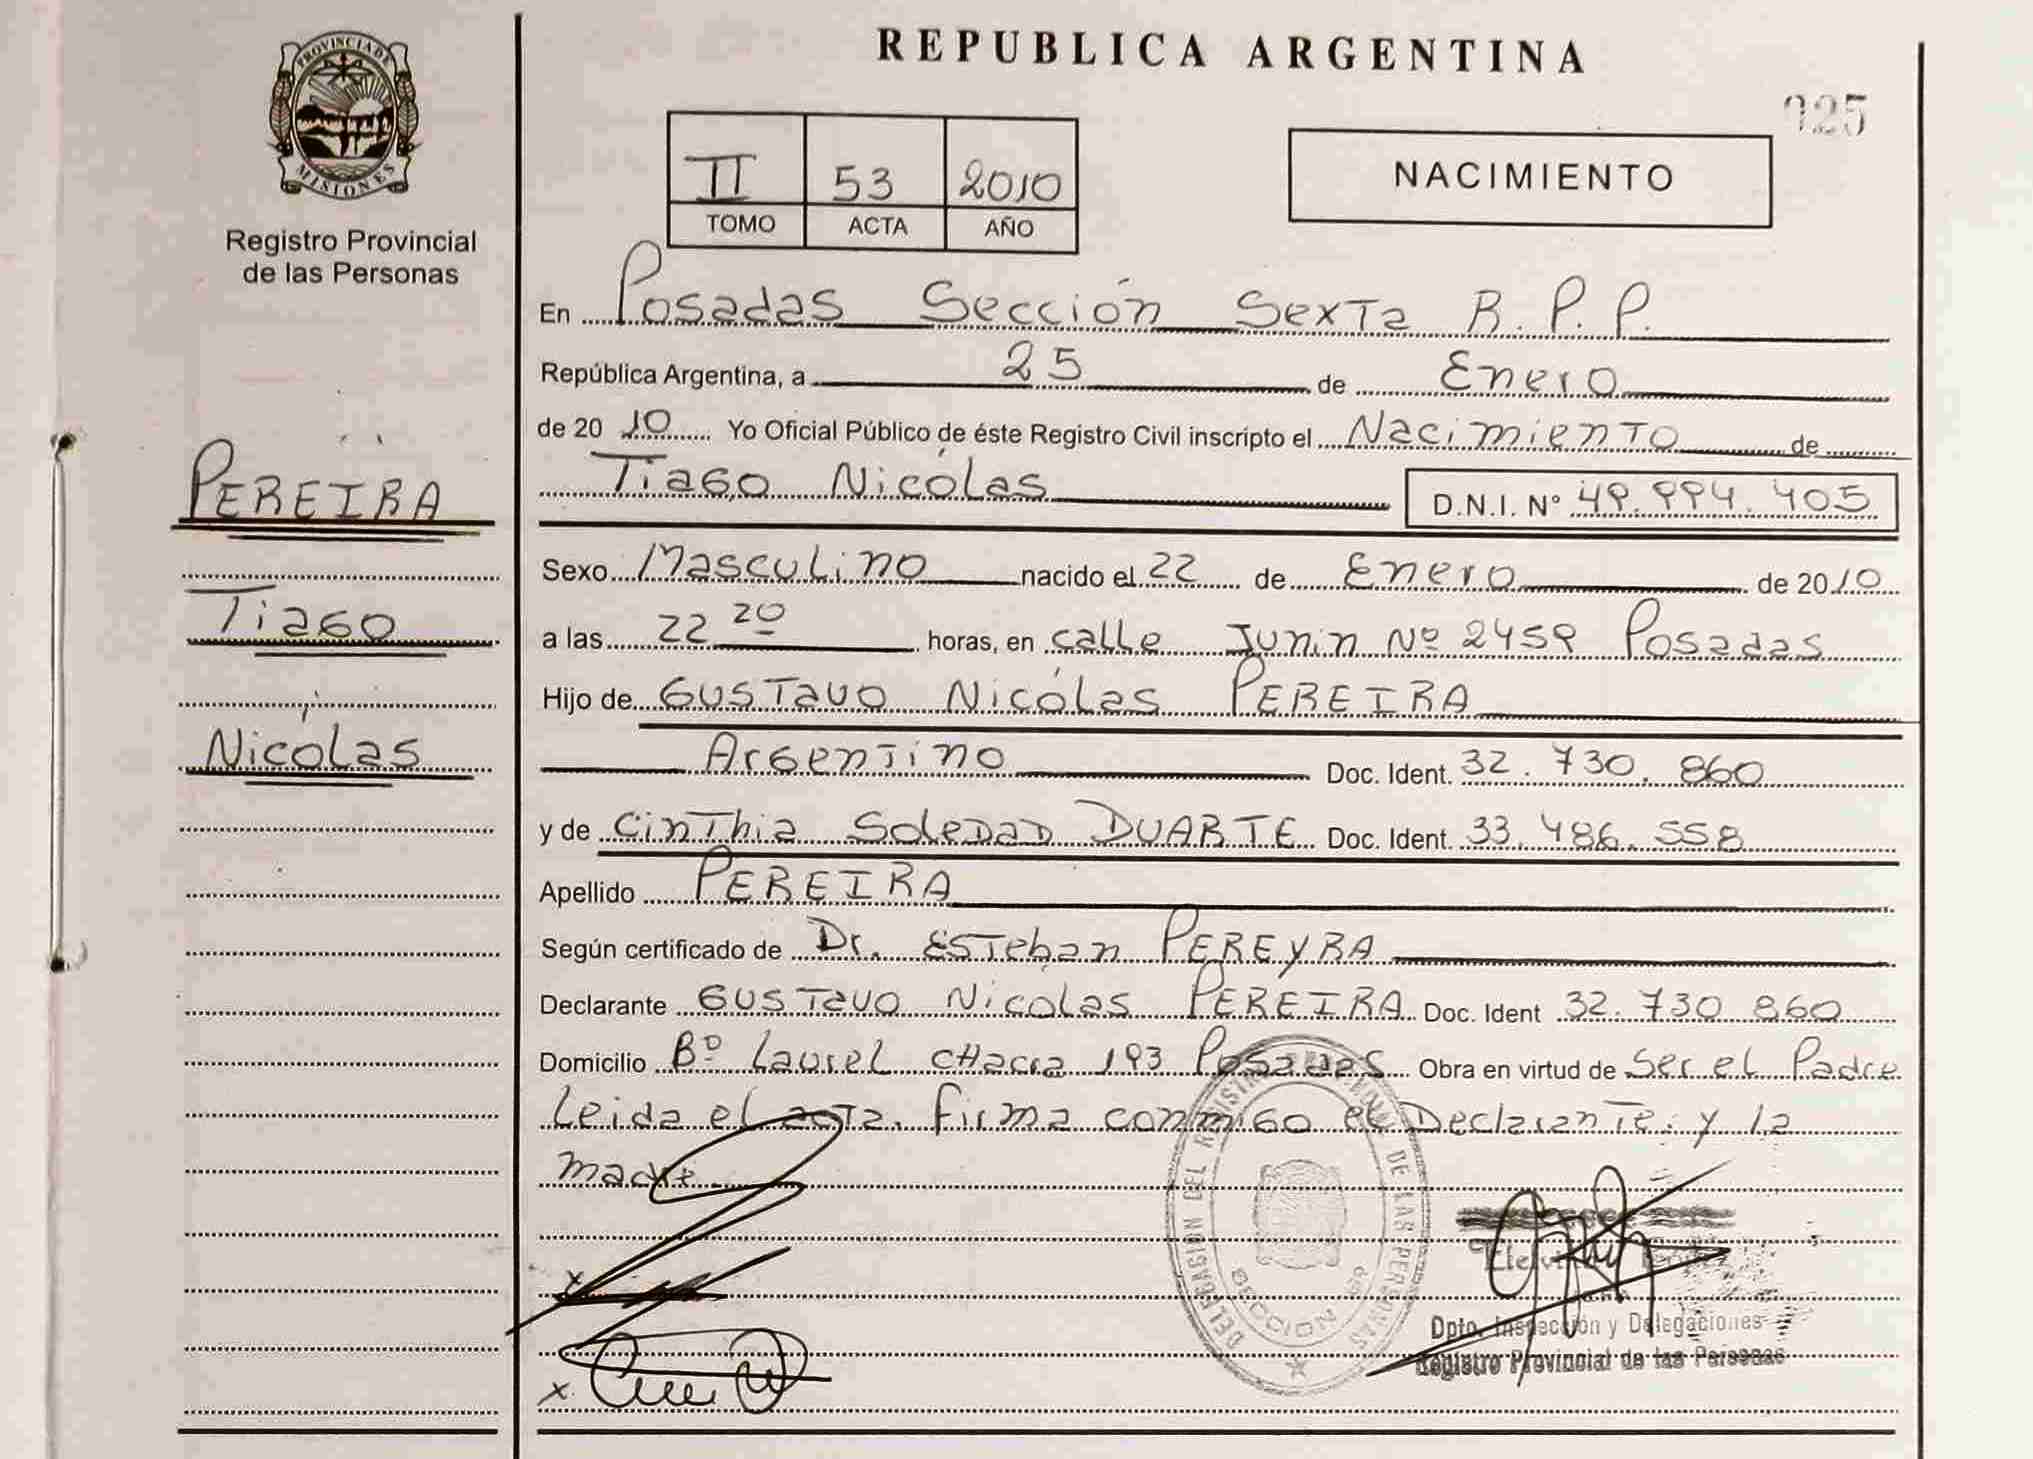 PROVINCIA DE
MISIONES
Registro Provincial
de las Personas
PEREIRA
Tiago
Nicólas
REPUBLICA ARGENTINA
925
II 53 2010
TOMO ACTA AÑO
NACIMIENTO
En Posadas Sección Sexta R.P.P.
República Argentina, a 25 de Enero
de 2010 Yo Oficial Público de éste Registro Civil inscripto el Nacimiento de
Tiago Nicólas D.N.I. N° 49.994.405
Sexo Masculino nacido el 22 de Enero de 2010
a las 22 20 horas, en calle Junin Nº 2459 Posadas
Hijo de GUSTavo Nicólas PEREIRA
Argentino Doc. Ident. 32.730.860
y de Cinthia SoleDaD DUARTE Doc. Ident. 33.486.558
Apellido PEREIRA
Según certificado de Dr. Esteban PEREYRA
Declarante GUSTavo Nicolas PEREIRA Doc. Ident 32.730 860
Domicilio Bº Laurel cHacra 193 Posadas Obra en virtud de Ser el Padre
Leida el acta, firma conmigo el Declarante y la
madre
x
x
DELEGACION DEL REGISTRO PROVINCIAL DE LAS PERSONAS
SECCION 6ª
Dpto. Inspección y Delegaciones
Registro Provincial de las Personas